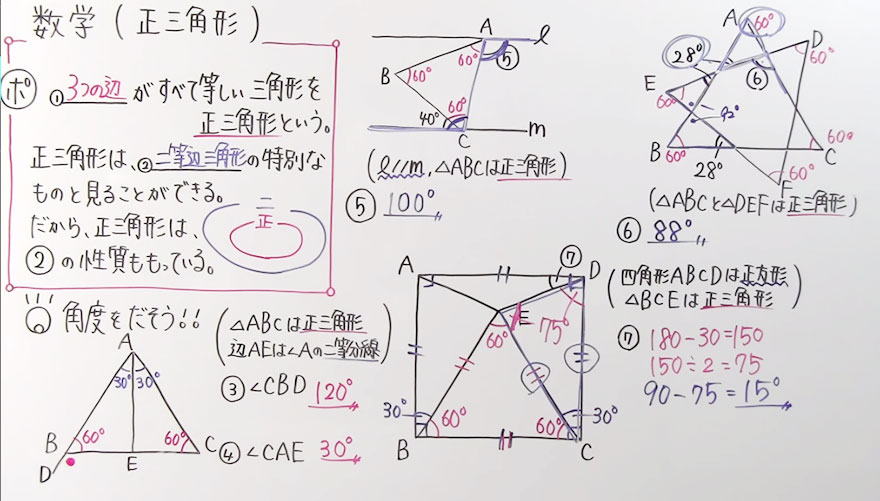 数学(正三角形)
ポ
①3つの辺がすべて等しい三角形を
正三角形という。
正三角形は、②二等辺三角形の特別な
ものと見ることができる。
だから、正三角形は、
②の性質ももっている。
二
正
角度をだそう!!
(△ABCは正三角形
辺AEは∠Aの二等分線)
③∠CBD 120°
④∠CAE 30°
A
30° 30°
B 60° 60° C
D E
A l
60° ⑤
B 60°
60°
40°
C m
(l//m, △ABCは正三角形)
⑤ 100°
A 60°
28° D
⑥ 60°
E
60° 92°
B 60° 60° C
28° 60°
F
(△ABCと△DEFは正三角形)
⑥ 88°
(四角形ABCDは正方形
△BCEは正三角形)
⑦
180-30=150
150÷2=75
90-75=15°
A ⑦ D
E
60° 75°
30° 30°
60° 60°
B C